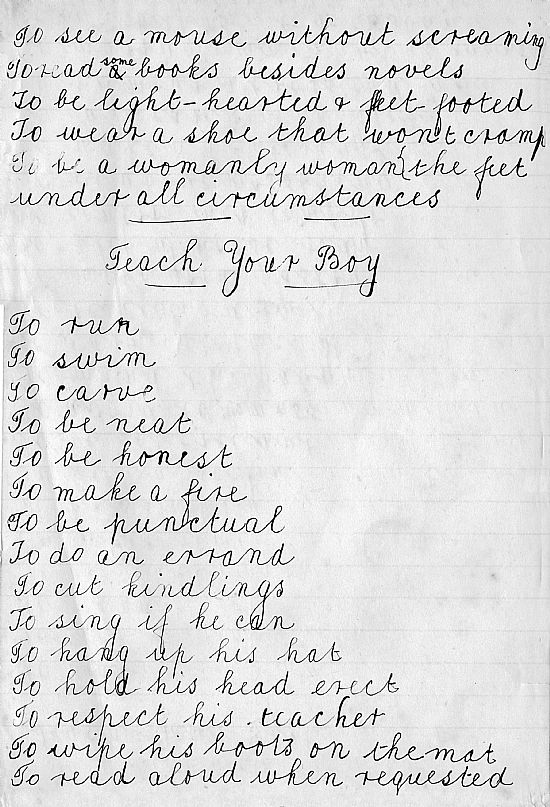 To see a mouse without screaming
To read some & books besides novels
To be light-hearted & fleet-footed
To wear a shoe that won't cramp
To be a womanly woman (the feet
under all circumstances
Teach Your Boy
To run
To swim
To carve
To be neat
To be honest
To make a fire
To be punctual
To do an errand
To cut kindlings
To sing if he can
To hang up his hat
To hold his head erect
To respect his teacher
To wipe his boots on the mat
To read aloud when requested